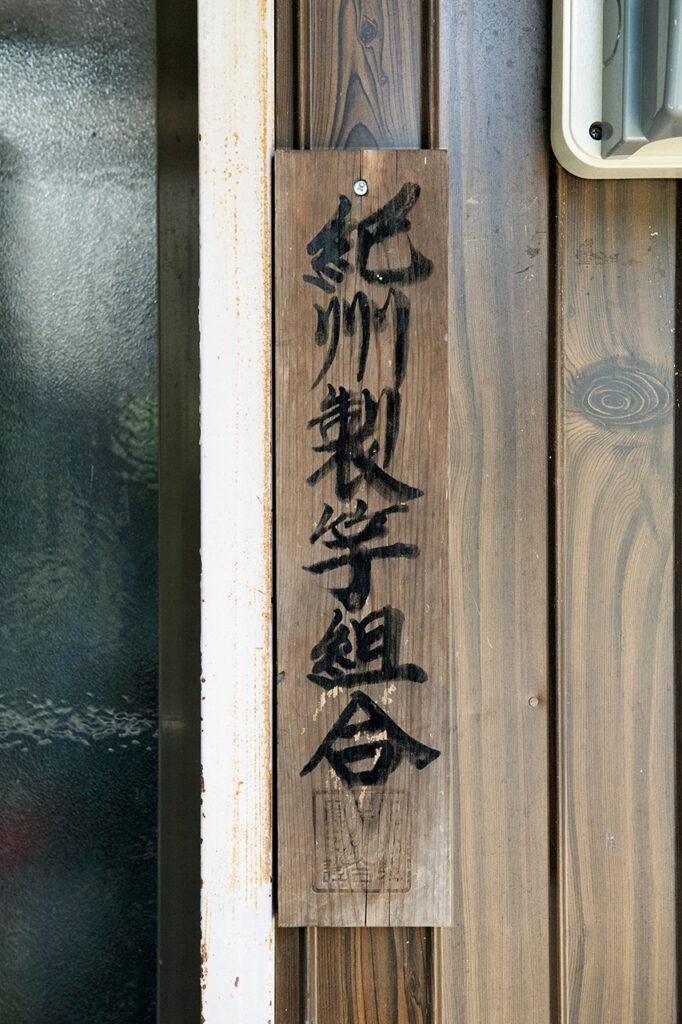 紀州製竿組合